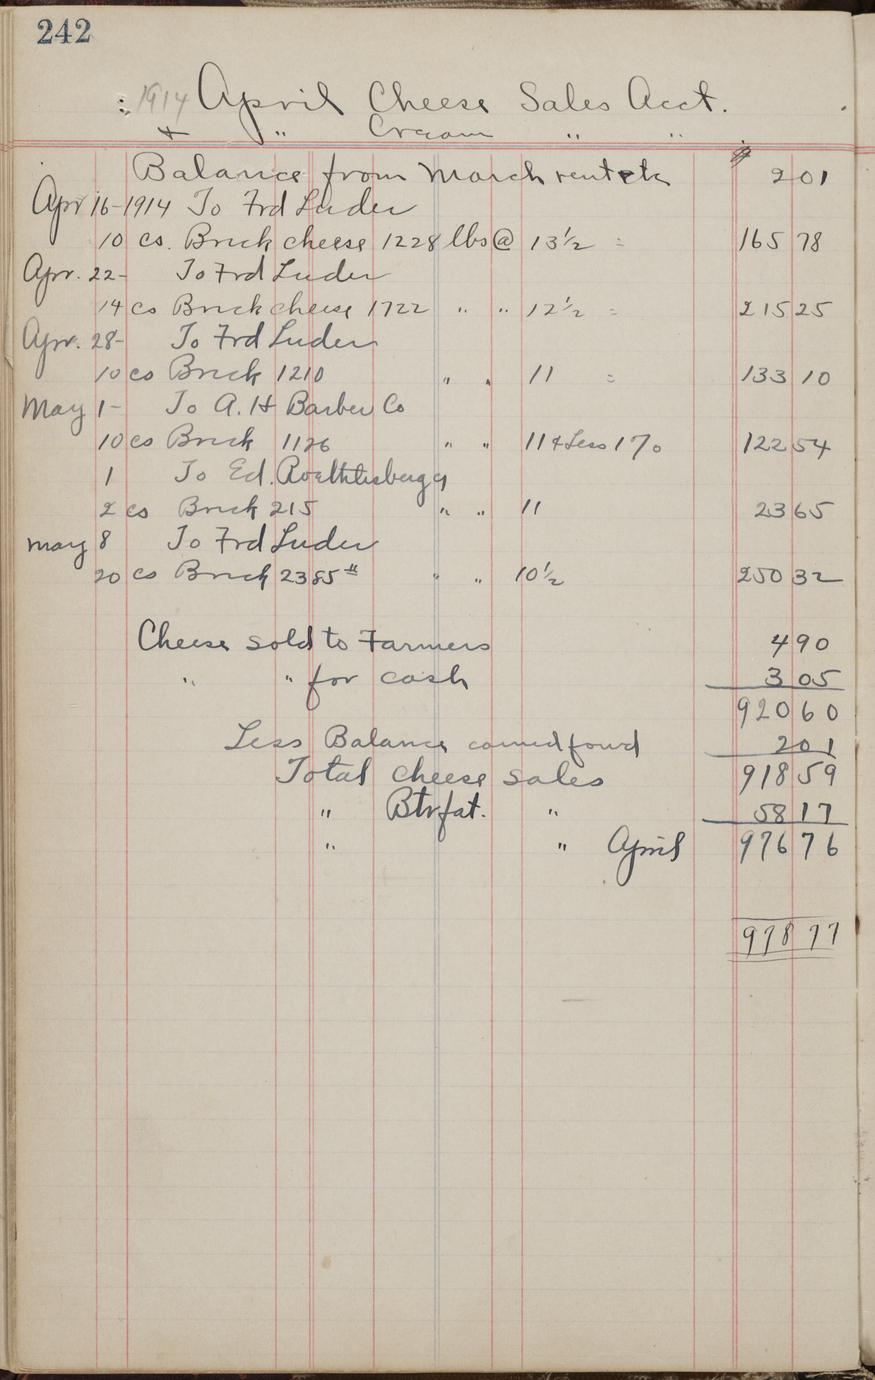 242
: 1914 April Cheese Sales Acct.
+ " Cream " "
Balance from March $ 2 01
Apr 16-1914 To Frd Luder
10 cs. Brick cheese 1228 lbs @ 13 1/2 = 165 78
Apr. 22- To Frd Luder
14 cs Brick cheese 1722 " " 12 1/2 = 215 25
Apr. 28- To Frd Luder
10 cs Brick 1210 " " 11 = 133 10
May 1- To A. H Barber Co
10 cs Brick 1126 " " 11 ¢ Less 1% 122 54
1 To Ed.
2 cs Brick 215 " " 11 23 65
May 8 To Frd Luder
20 cs Brick 2385 # " " 10 1/2 250 32
Cheese sold to Farmers 4 90
" " for cash 3 05
920 60
Less Balance 2 01
Total cheese sales 918 59
" Btrfat. " 58 17
" " April 976 76
978 77